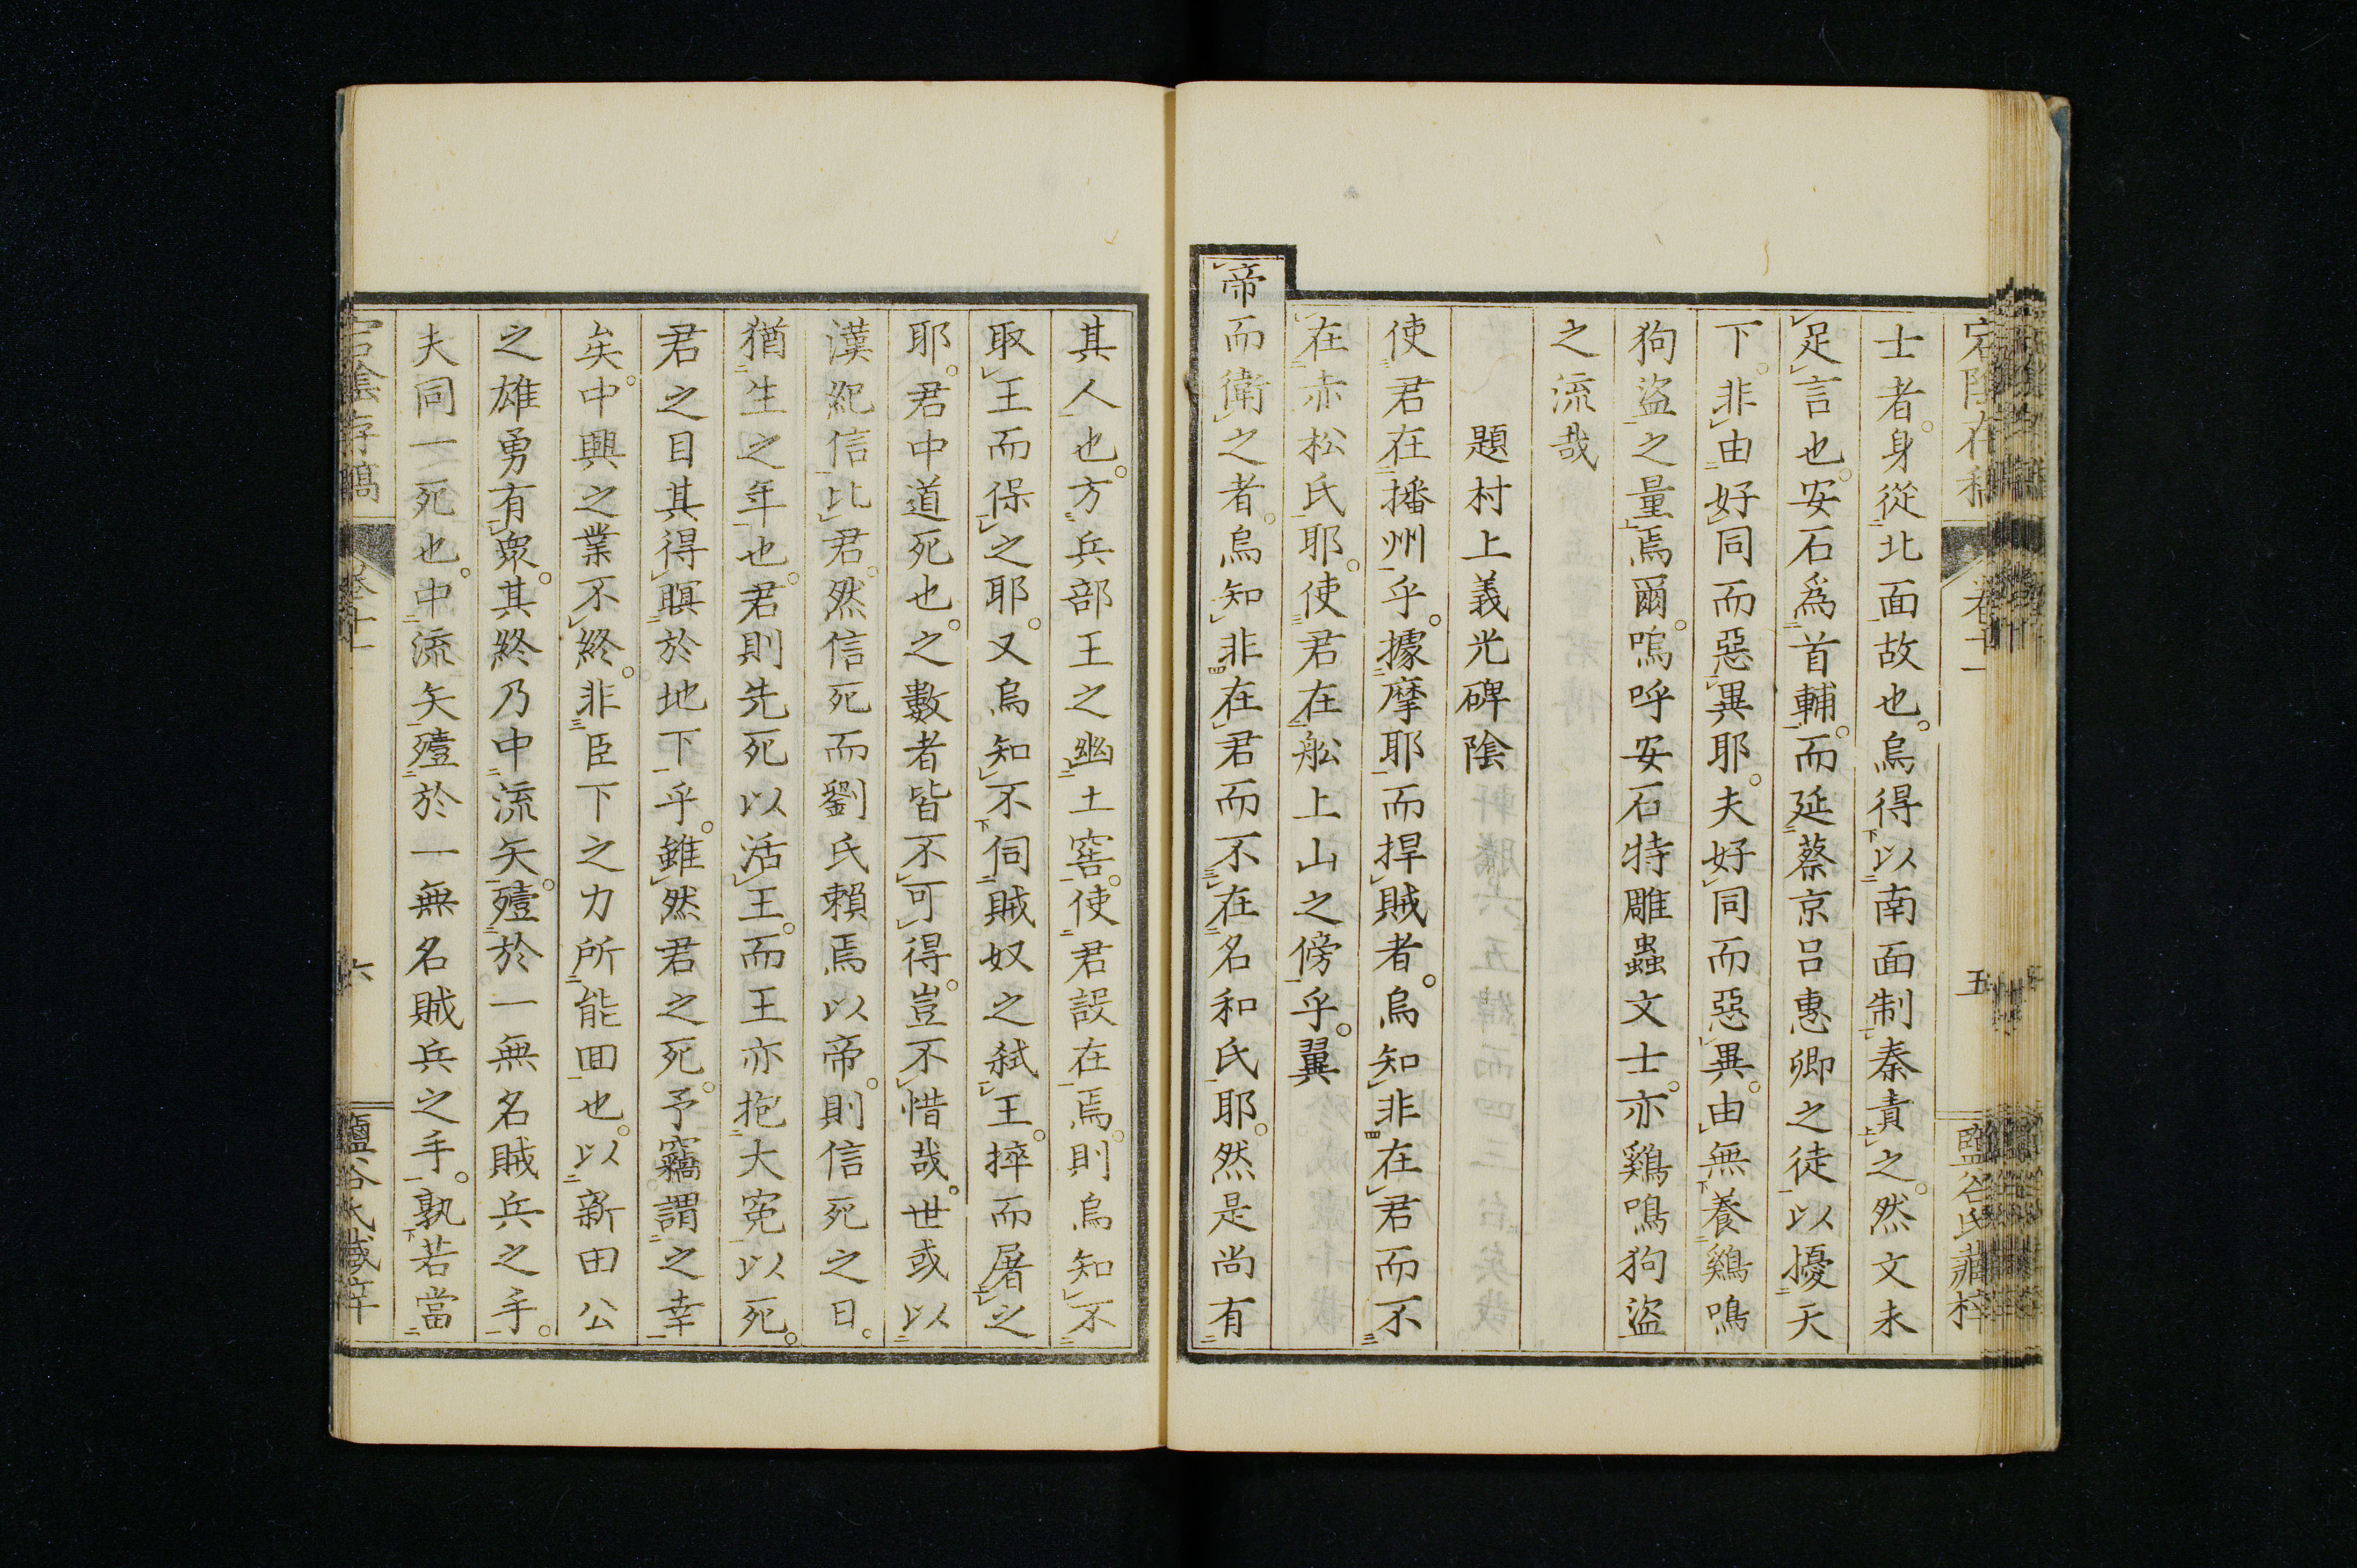 宕陰存稿 卷十一 五 鹽谷氏藏梓
士者。身從北面故也。烏得以南面制秦責之。然文未
足言也。安石爲首輔。而延蔡京呂惠卿之徒以擾天
下。非由好同而惡異耶。夫好同而惡異。由無養鷄鳴
狗盜之量焉爾。嗚呼安石特雕蟲文士。亦鷄鳴狗盜
之流哉
題村上義光碑陰
使君在播州乎。據摩耶而捍賊者。烏知非在君而不
在赤松氏耶。使君在舩上山之傍乎。翼
帝而衛之者。烏知非在君而不在名和氏耶。然是尚有
其人也。方兵部王之幽土窖。使君設在焉。則烏知不
取王而保之耶。又烏知不伺賊奴之弑王。捽而屠之
耶。君中道死也。之數者皆不可得。豈不惜哉。世或以
漢紀信比君。然信死而劉氏賴焉以帝。則信死之日。
猶生之年也。君則先死以活王。而王亦抱大寃以死。
君之目其得瞑於地下乎。雖然君之死。予竊謂之幸
矣。中興之業不終。非臣下之力所能回也。以新田公
之雄勇有衆。其終乃中流矢。殪於一無名賊兵之手。
夫同一死也。中流矢殪於一無名賊兵之手。孰若當
宕陰存稿 卷十一 六 鹽谷氏藏梓